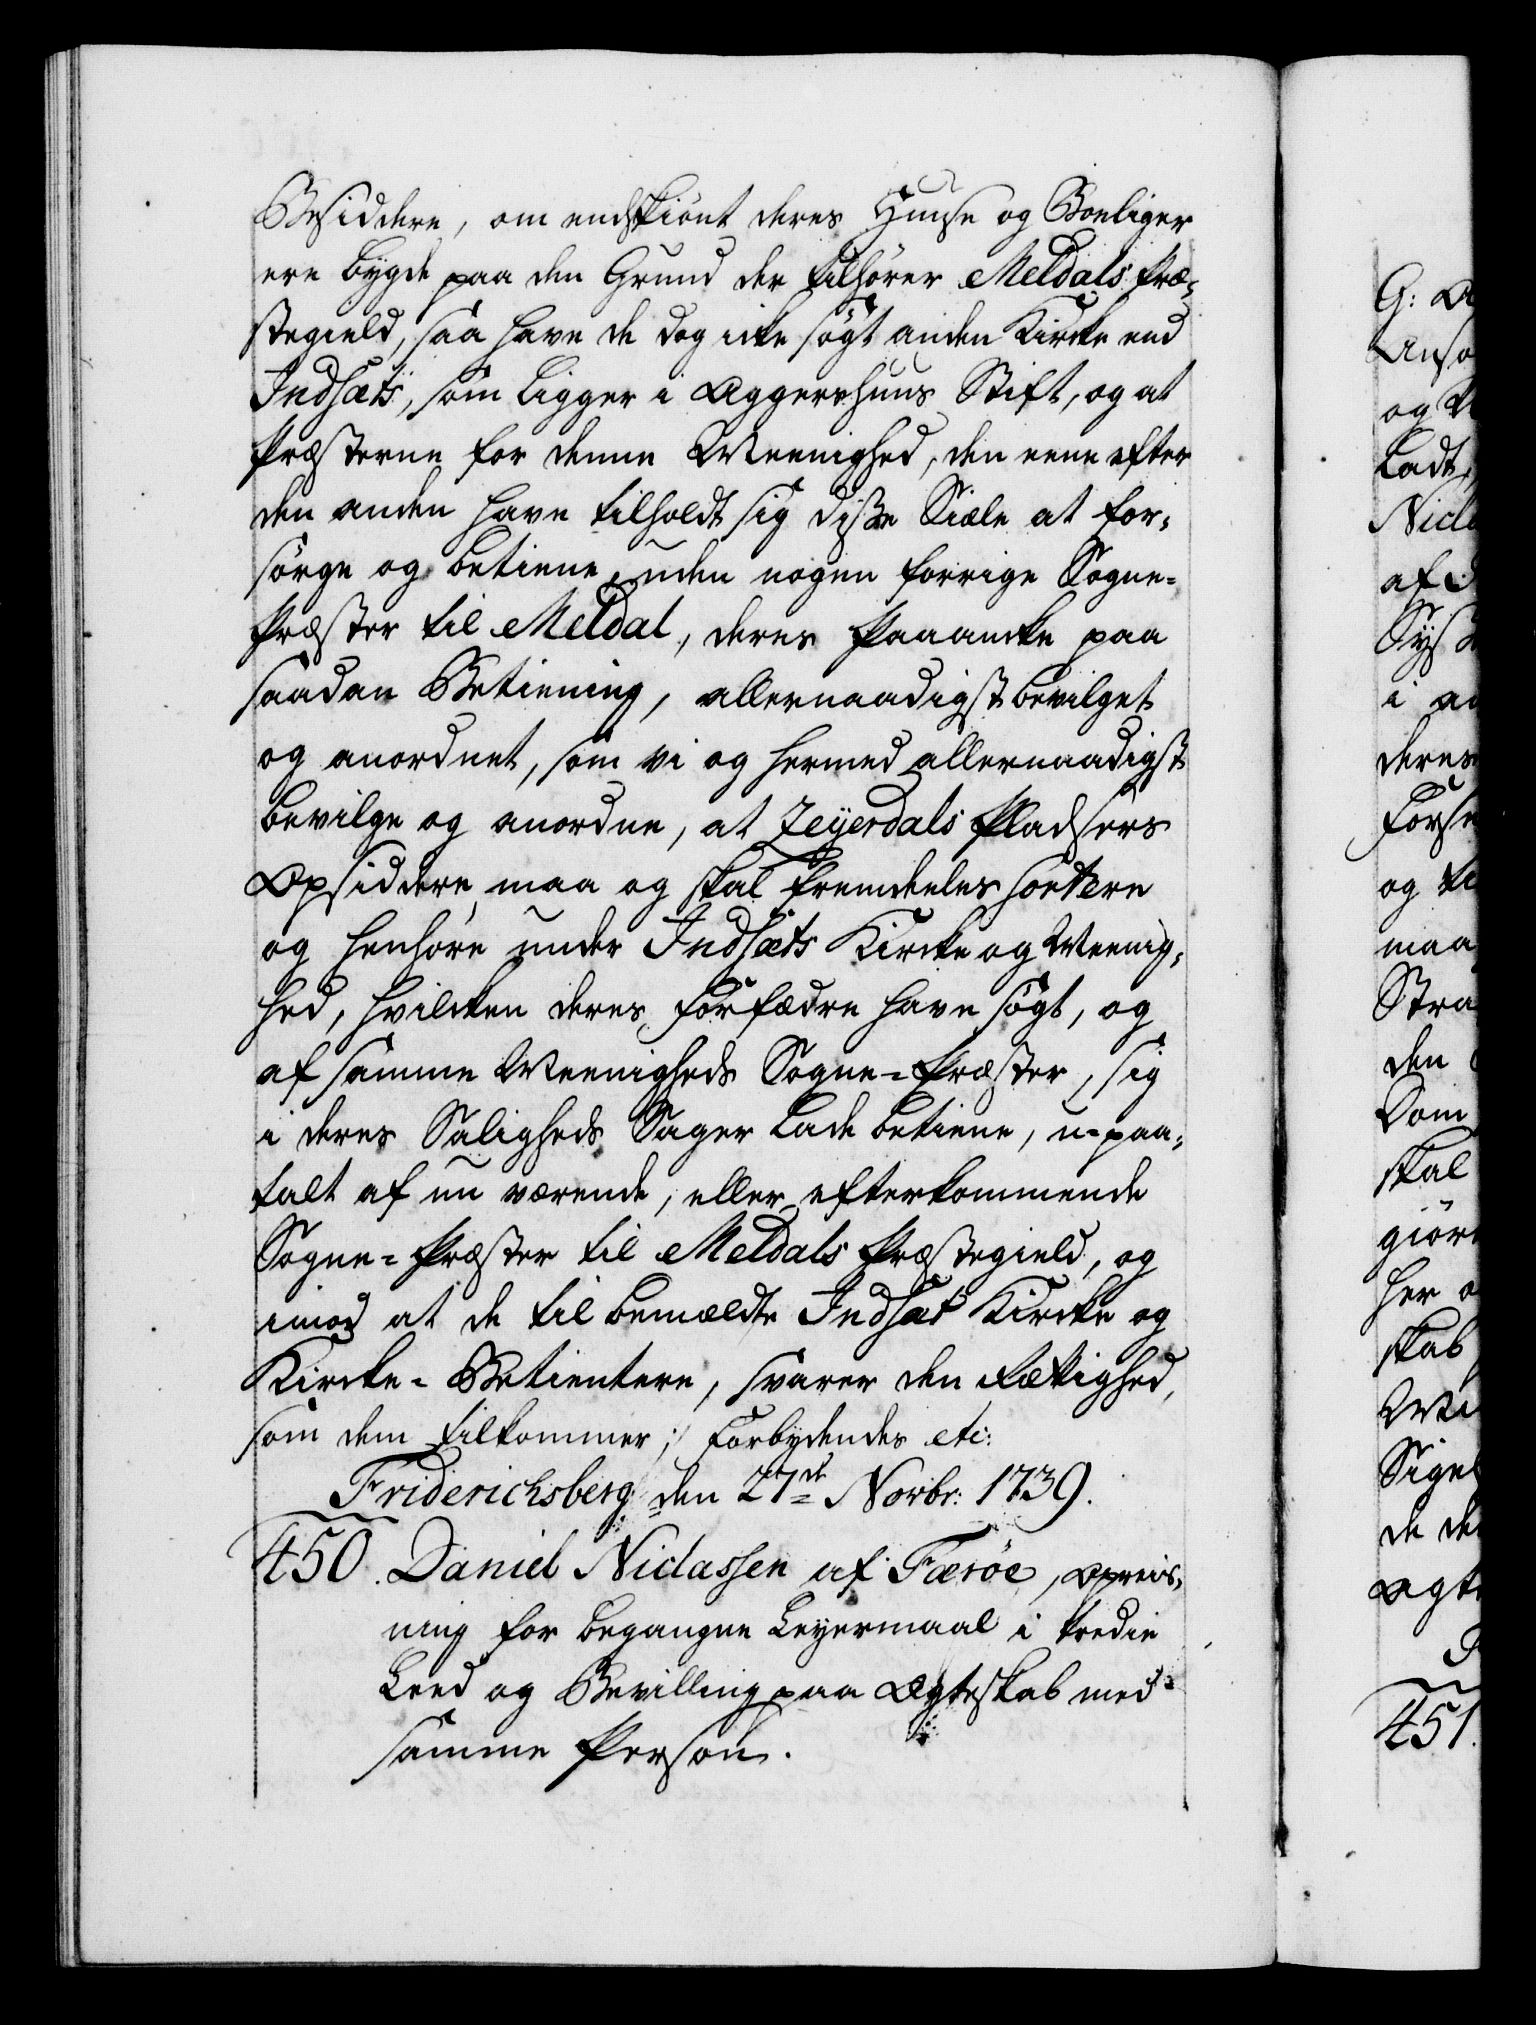 Besiddere, om endskiönt deres Huuse og Boeliger
ere bygde paa den Grund der tilhører Meldals Præ-
stegield, saa have de dog icke søgt anden Kircke end
Indsæts, som ligger i Aggershuus Stift, og at
Præsterne for denne Meenighed, den eene efter
den anden have tilholdt sig disse Siæle at for-
sørge og betiene, uden nogen forrige Sogne-
Præster til Meldal, deres Paaancke paa
saadan Betiening, allernaadigst bevilget
og anordnet, som vi og hermed allernaadigst
bevilge og anordne, at Zeyerdals Pladsers
Opsiddere maa og skal fremdeeles sortere
og henhøre under Indsæts Kircke og Meenig-
hed, hvilcken deres Forfædre have søgt, og
af samme Meenigheds Sogne-Præster, sig
i deres Saligheds Sager lade betiene, u-paa-
talt af nu værende, eller efterkommende
Sogne-Præster til Meldals Præstegield, og
imod at de til bemældte Indsæt Kircke og
Kircke-Betientere, svarer den Rettighed,
som dem tilkommer; Forbydendes etc:
Friderichsberg den 27de Novbr: 1739.
450. Daniel Niclassen af Færöe, Opreis-
ning for begangne Leyermaal i tredie
Leed og Bevilling paa Ægteskab med
samme Person.
G:
og
Ladt
af
i
deres
og
maa
den
skal
her
skab
de
451.